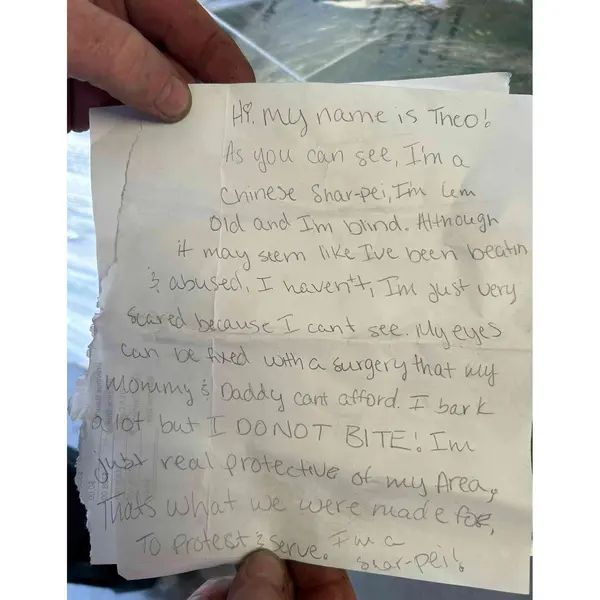 Hi. My name is Theo!
As you can see, I'm a
Chinese Shar-pei, I'm 6m
Old and I'm blind. Although
it may seem like I've been beatin
& abused, I haven't, I'm just very
scared because I cant see. My eyes
can be fixed with a surgery that my
Mommy & Daddy cant afford. I bark
a lot but I DO NOT BITE! Im
just real protective of my Area,
Thats what we were made for,
To Protest & Serve. I'm a
Shar-pei!